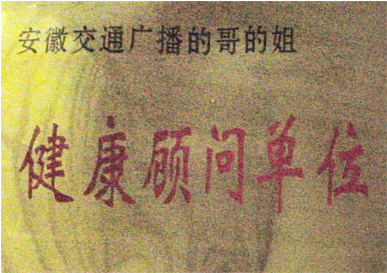 安徽交通广播的哥的姐
健康顾问单位